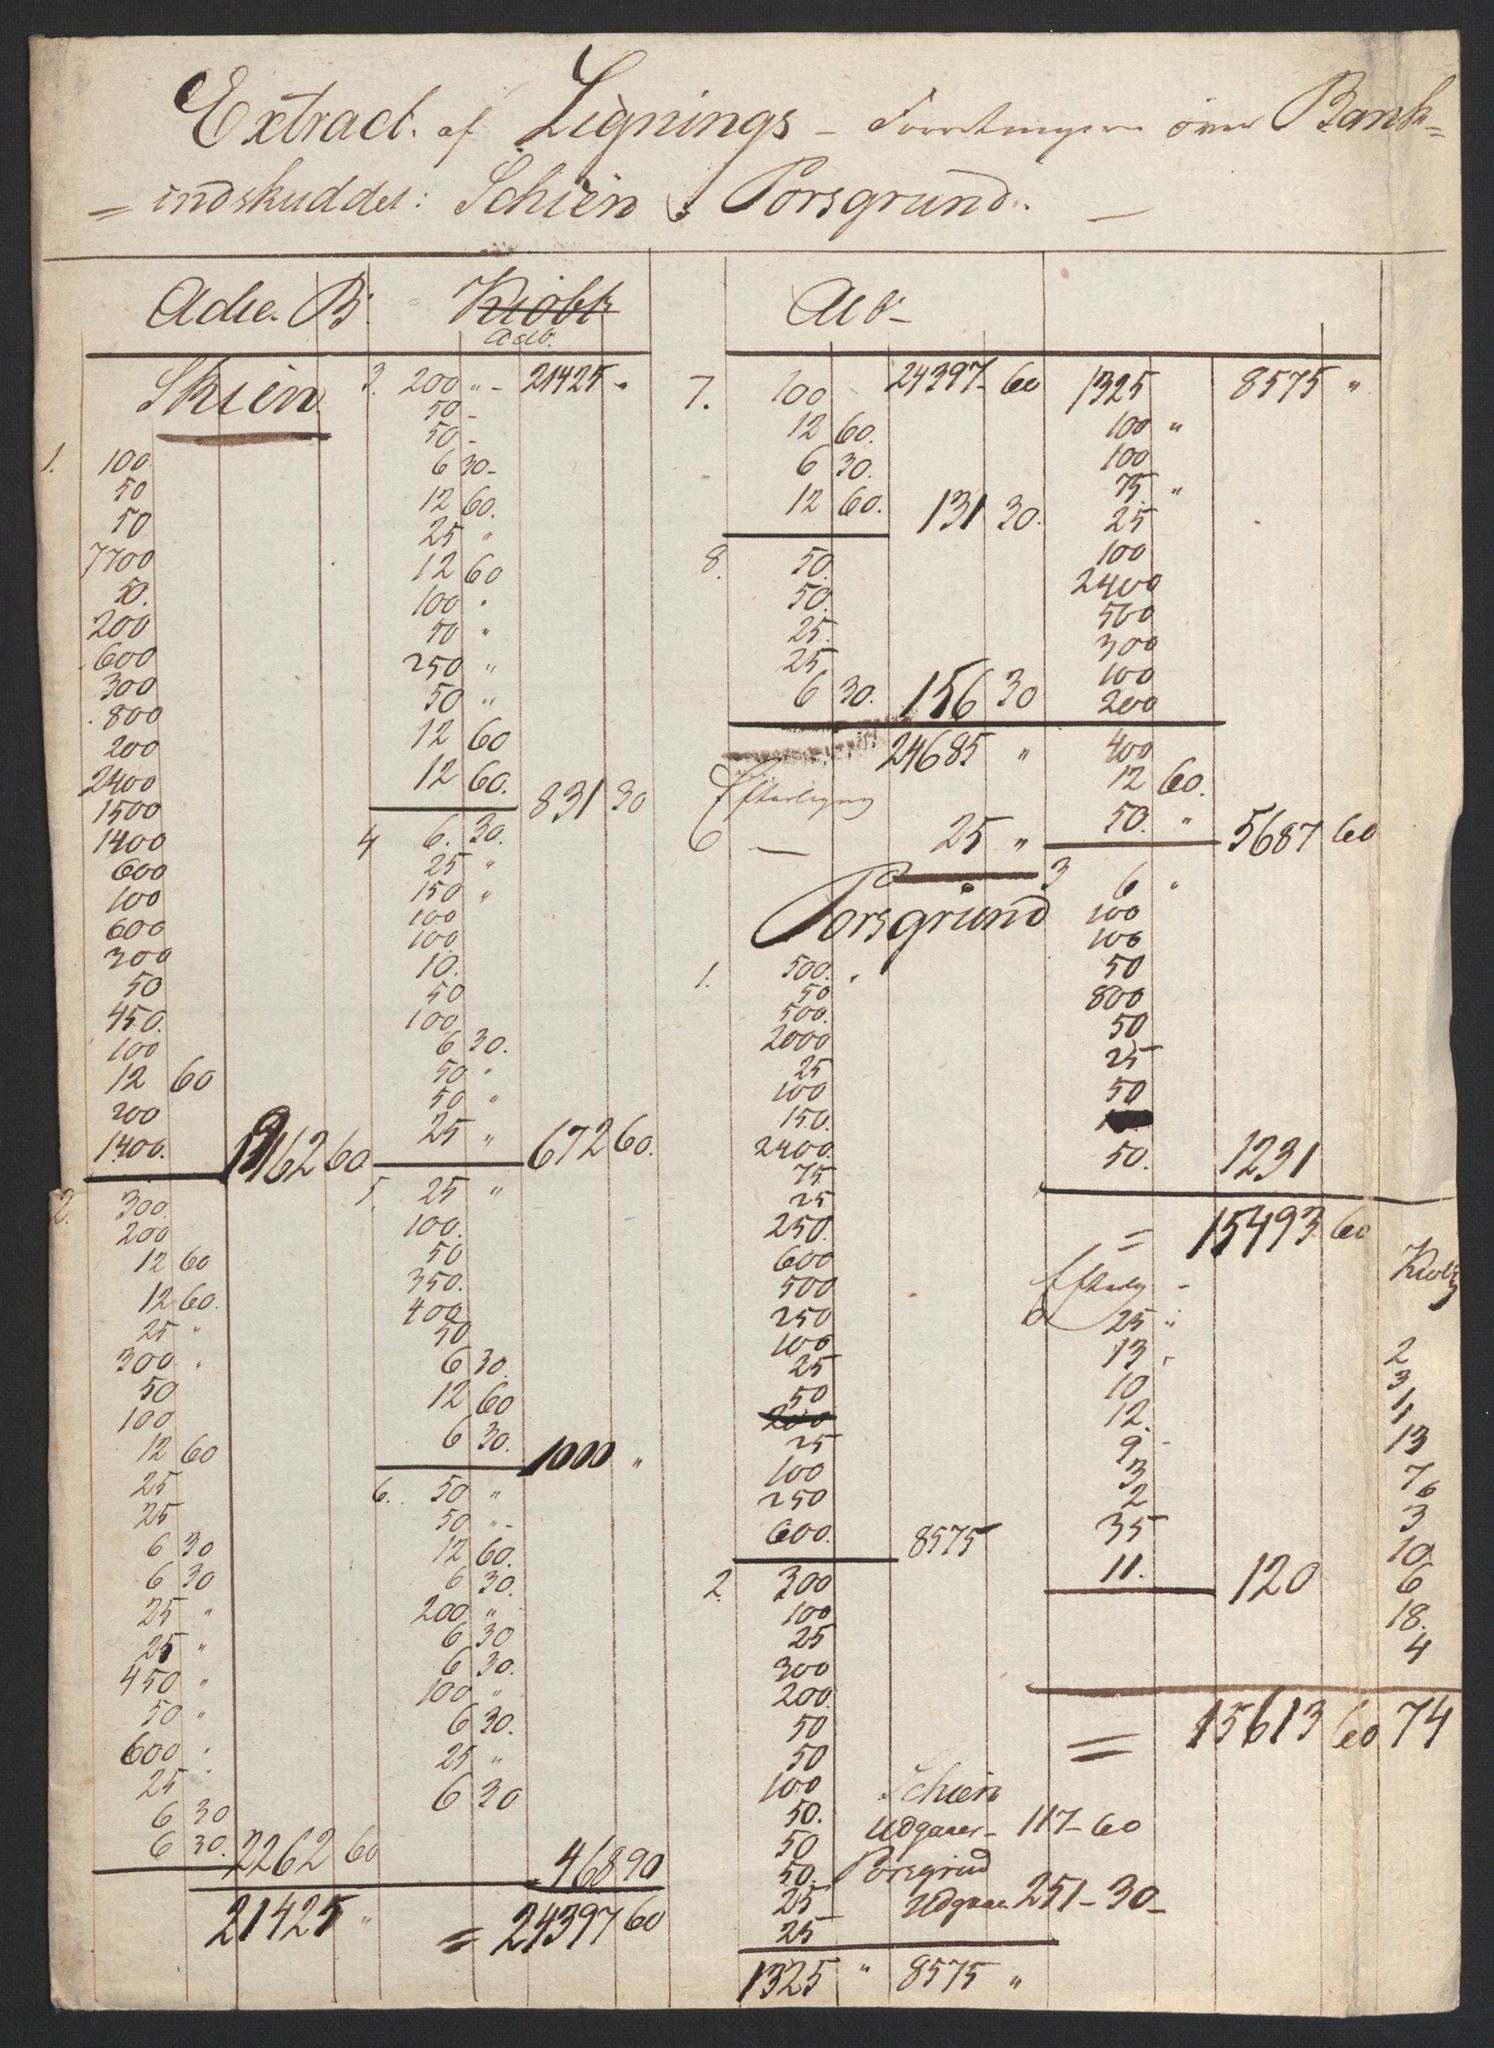 Extract. af Lignings- Forretningen over Bank-
= indskuddet: Schien & Porsgrund. —
Adie. B.
Kiobk
Adb.
Skien
1. 100
50
50
7700
50.
200
600
300
800
200
2400
1500
1400
600
100
600
300
50
450.
100
12 60
200
1400. 19162 60
2. 300.
200
12 60
12 60.
25 "
300 "
50
100
12 60
25
25
6 30
6 30
25 "
25 "
450 "
50 "
600 "
25
6 30
6 30. 2262 60
21425 "
3. 200 " - 21425 "
50 -
50 -
6 30 -
12 60.
25 "
12 60
100 "
50 "
250 "
50 "
12 60
12 60. 831 30
4 6. 30.
25 "
150 "
100
100.
10.
50
100
6 30.
50 "
50 "
25 " 672 60.
5. 25 "
100.
50
350.
400
50
6 30.
12 60
6 30. 1000 "
6. 50 "
50 " -
12 60.
6 30.
200 "
6 30
6 30.
100 "
6 30.
25 "
6 30
468 90
= 24397 60
Alb-
24397 - 60
7. 100 -
12 60.
6 30.
12 60. 131 30.
8. 50.
50.
25.
25.
6 30. 156 30
24685 "
Efterligng
6 — 25 "
Porsgrund
1. 500. "
50
500.
2000
25
100
150.
2400.
75
25
250.
600
500
250
100
25
50
200
25
100
250
600. 8575
2. 300
100
25
300
200.
50
50
100
50.
50
50.
25
25
1325 " 8575 "
Schien
Udgaaer - 117 - 60
Porsgrund
Udgaaer 251 - 30 -
1325 8575 "
100 "
100
75 "
25
100
2400
500
300
100
200
400
12 60.
50. " 5687 60
3 6 "
100
100
50
800
50
25
50
50. 1231
= 15493 60
Efterlig -
25 "
13 "
10
12.
9 -
3
2
35
11. 120
= 15613 60 74
2
3
1
13
7
6
3
10
6
18.
4